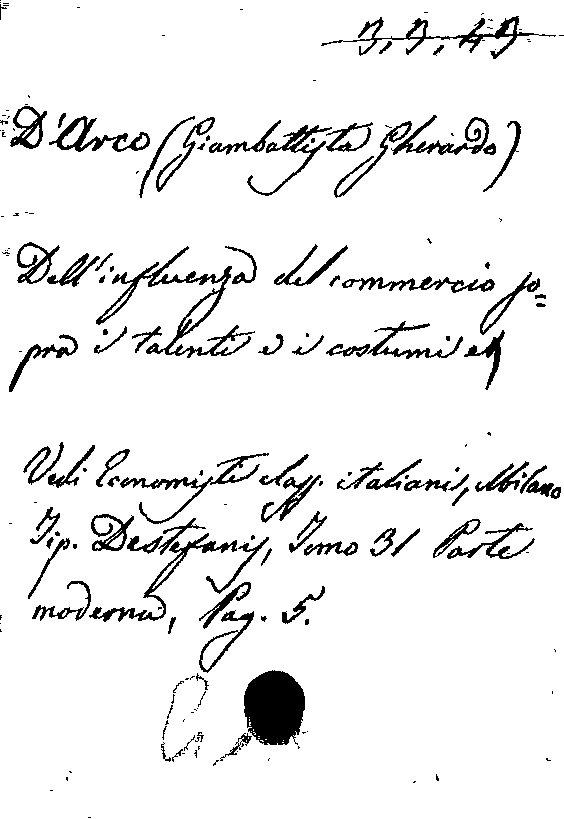 3, 3, 43
D'Arco (Giambattista Gherardo)
Dell'influenza del commercio so=
pra i talenti e i costumi
Vedi Economisti class. italiani, Milano
Tip. Destefanis, Tomo 31 Parte
moderna, Pag. 5.